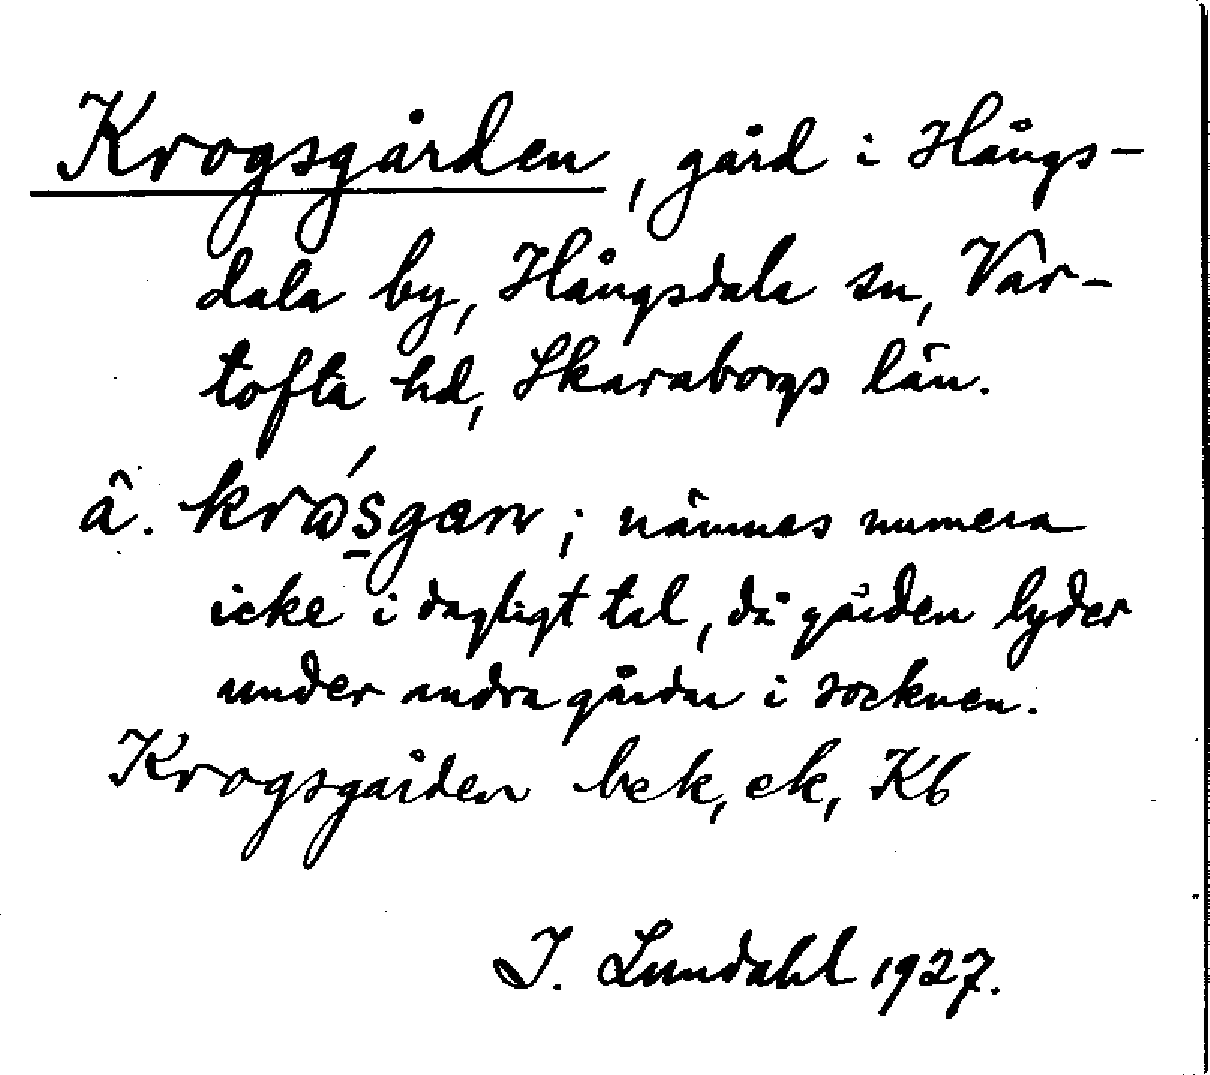 Krogsgården, gård i Hångs-
dala by, Hångsdala sn, Var-
tofta hd, Skaraborgs län.
â. krɷ́s̱gan; nämnes numera
icke i dagligt tal, då gården lyder
under andra gårdar i socknen.
Krogsgården bek, ek, Kb
I. Lundahl 1927.